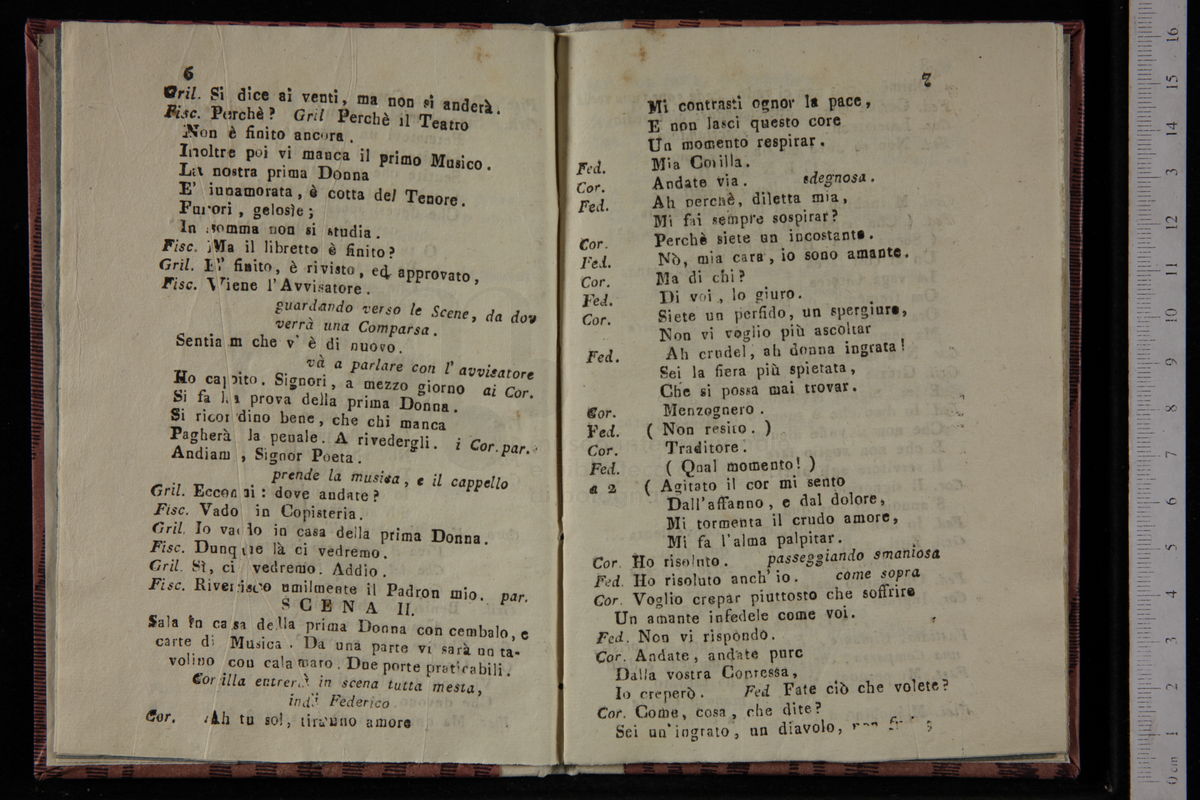 6
Gril. Si dice ai venti, ma non si anderà.
Fisc. Perchè? Gril Perchè il Teatro
Non è finito ancora.
Inoltre poi vi manca il primo Musico.
La nostra prima Donna
E' innamorata, è cotta del Tenore.
Furori, gelosìe;
In somma non si studia.
Fisc. Ma il libretto è finito?
Gril. E' finito, è rivisto, ed approvato,
Fisc. Viene l'Avvisatore.
guardando verso le Scene, da dov
verrà una Comparsa.
Sentiam che v' è di nuovo.
và a parlare con l' avvisatore
Ho capito. Signori, a mezzo giorno ai Cor.
Si fa la prova della prima Donna.
Si ricordino bene, che chi manca
Pagherà la penale. A rivedergli. i Cor. par.
Andiam, Signor Poeta.
prende la musica, e il cappello
Gril. Eccomi: dove andate?
Fisc. Vado in Copisteria.
Gril. Io vado in casa della prima Donna.
Fisc. Dunque là ci vedremo.
Gril. Sì, ci vedremo. Addio.
Fisc. Riverisco umilmente il Padron mio. par.
SCENA II.
Sala in casa della prima Donna con cembalo, e
carte di Musica. Da una parte vi sarà un ta-
volino con calamaro. Due porte praticabili.
Corilla entrerà in scena tutta mesta,
indi Federico
Cor. Ah tu sol, tiranno amore
7
Mi contrasti ognor la pace,
E non lasci questo core
Un momento respirar.
Fed. Mia Corilla.
Cor. Andate via. sdegnosa.
Fed. Ah perchè, diletta mia,
Mi fai sempre sospirar?
Cor. Perchè siete un incostante.
Fed. Nò, mia cara, io sono amante.
Cor. Ma di chi?
Fed. Di voi, lo giuro.
Cor. Siete un perfido, un spergiuro,
Non vi voglio più ascoltar
Fed. Ah crudel, ah donna ingrata!
Sei la fiera più spietata,
Che si possa mai trovar.
Cor. Menzognero.
Fed. ( Non resito. )
Cor. Traditore.
Fed. ( Qual momento! )
a 2 ( Agitato il cor mi sento
Dall'affanno, e dal dolore,
Mi tormenta il crudo amore,
Mi fa l'alma palpitar.
Cor. Ho risoluto. passeggiando smaniosa
Fed. Ho risoluto anch' io. come sopra
Cor. Voglio crepar piuttosto che soffrire
Un amante infedele come voi.
Fed. Non vi rispondo.
Cor. Andate, andate pure
Dalla vostra Contessa,
Io creperò. Fed Fate ciò che volete?
Cor. Come, cosa, che dite?
Sei un'ingrato, un diavolo,
0 cm 1 2 3 4 5 6 7 8 9 10 11 12 13 14 15 16